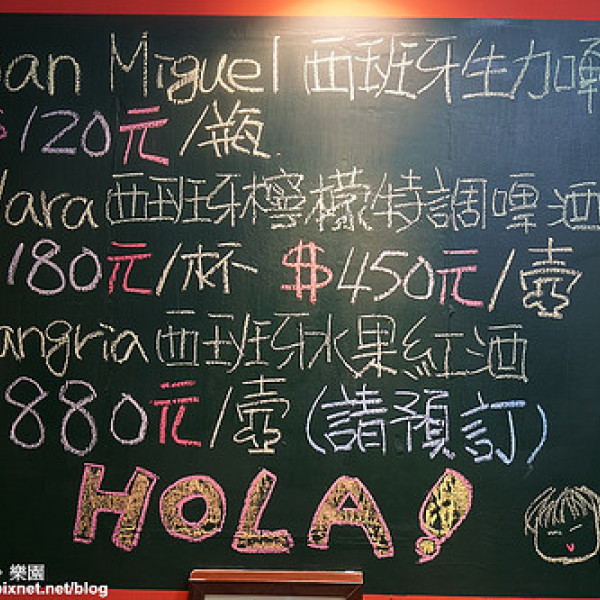 an Miguel 西班牙生力啤
$120元/瓶
lara西班牙檸檬特調啤酒
180元/杯 $450元/壺
angria西班牙水果紅酒
880元/壺(請預訂)
HOLA!
樂園
pixnet.net/blog